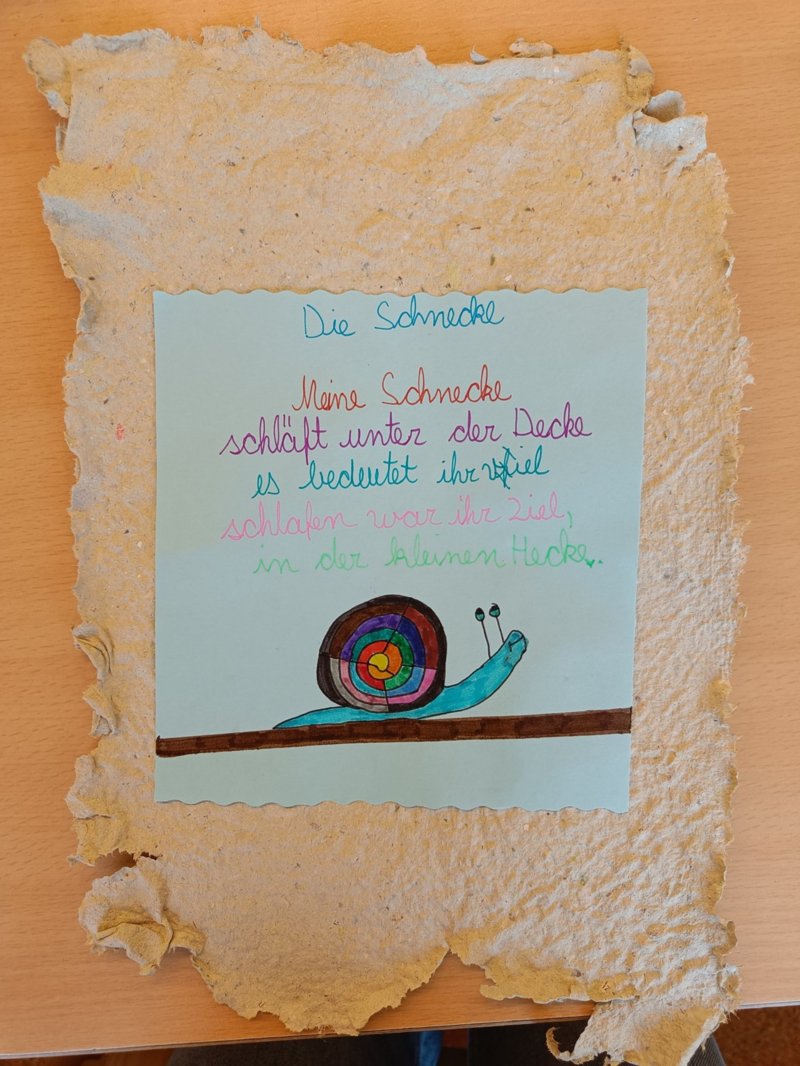 Die Schnecke
Meine Schnecke
schläft unter der Decke
es bedeutet ihr viel
schlafen war ihr Ziel,
in der kleinen Hecke.